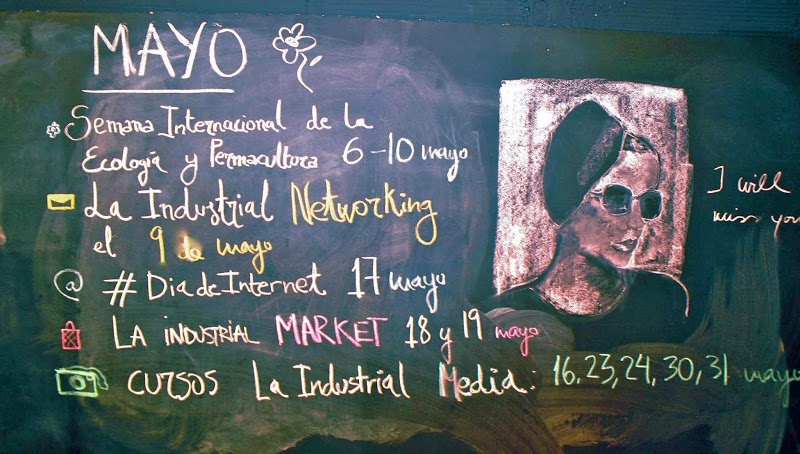 MAYO
Semana Internacional de la
Ecología y Permacultura 6-10 mayo
La Industrial Networking
el 9 de mayo
@ #DiadeInternet 17 mayo
LA INDUSTRIAL MARKET 18 y 19 mayo
CURSOS La Industrial Media: 16,23,24,30,31 mayo
I will
miss you